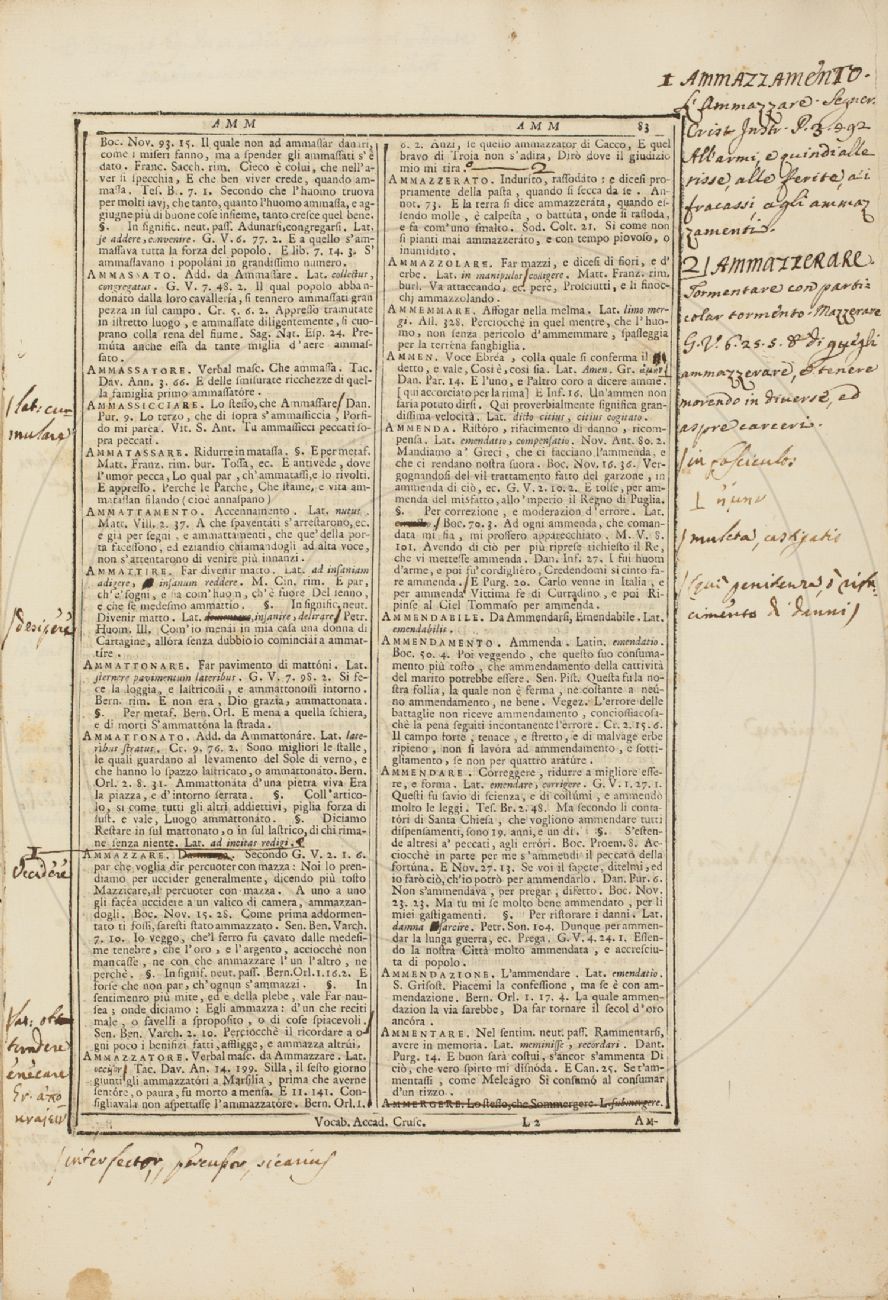 AMM
Boc. Nov. 93. 15. Il quale non ad ammassar danari,
come i miseri fanno, ma a spender gli ammassati s'è
dato. Franc. Sacch. rim. Cieco è colui, che nell'a-
ver si specchia, E che ben viver crede, quando am-
massa. Tes. B. 7. 1. Secondo che l'huomo truova
per molti savj, che tanto, quanto l'huomo ammassa, e ag-
giugne più di buone cose insieme, tanto cresce quel bene.
§. In signific. neut. pass. Adunarsi, congregarsi. Lat.
se addere, convenire. G. V. 6. 77. 2. E a quello s'am-
massava tutta la forza del popolo. E lib. 7. 14. 3. S'
ammassavano i popolani in grandissimo numero.
AMMASSATO. Add. da Ammassare. Lat. collectus,
congregatus. G. V. 7. 48. 2. Il qual popolo abban-
donato dalla loro cavallería, si tennero ammassati gran
pezza in sul campo. Cr. 5. 6. 2. Appresso tramutate
in istretto luogo, e ammassate diligentemente, si cuo-
prano colla rena del fiume. Sag. Nat. Esp. 24. Pre-
múta anche essa da tante miglia d'aere ammas-
sato.
AMMASSATORE. Verbal masc. Che ammassa. Tac.
Dav. Ann. 3. 66. E delle smisurate ricchezze di quel-
la famiglia primo ammassatóre.
AMMASSICCIARE. Lo stesso, che Ammassare Dan.
Pur. 9. Lo terzo, che di sopra s'ammassiccia, Porfi-
do mi parea. Vit. S. Ant. Tu ammassicci peccati so-
pra peccati.
AMMATASSARE. Ridurre in matassa. §. E per metaf.
Matt. Franz. rim. bur. Tossa, ec. E antivede, dove
l'umor pecca, Lo qual par, ch'ammatassi, e lo rivolti.
E appresso. Perchè le Parche, Che stame, e vita am-
matassan filando (cioè annaspano)
AMMATTAMENTO. Accennamento. Lat. nutus.
Matt. Vill. 2. 37. A che spaventati s'arrestarono, ec.
e già per segni, e ammattamenti, che que' della por-
ta facessono, ed eziandio chiamandogli ad alta voce,
non s'attentarono di venire più innanzi.
AMMATTIRE. Far divenir matto. Lat. ad insaniam
adigere, insanum reddere. M. Cin. rim. E par,
ch'e' sogni, e sia com'huom, ch'è fuore Del senno,
e che se medesmo ammattio. §. In signific. neut.
Divenir matto. Lat. insanire, delirare Petr.
Huom. Ill. Com'io menài in mia casa una donna di
Cartagine, allóra senza dubbio io cominciai a ammat-
tire.
AMMATTONARE. Far pavimento di mattóni. Lat.
sternere pavimentum lateribus. G. V. 7. 98. 2. Si fe-
ce la loggia, e lastricossi, e ammattonossi intorno.
Bern. rim. E non era, Dio grazia, ammattonata.
§. Per metaf. Bern. Orl. E mena a quella schiera,
e di morti S'ammattóna la strada.
AMMATTONATO. Add. da Ammattonáre. Lat. late-
ribus stratus. Cr. 9. 76. 2. Sono migliori le stalle,
le quali guardano al levamento del Sole di verno, e
che hanno lo spazzo lastricato, o ammattonáto. Bern.
Orl. 2. 8. 31. Ammattonáta d'una pietra viva Era
la piazza, e d'intorno serrata. §. Coll'artico-
lo, si come tutti gli altri addiettivi, piglia forza di
sust. e vale, Luogo ammattonáto. §. Diciamo
Restare in sul mattonato, o in sul lastrico, di chi rima-
ne senza niente. Lat. ad incitas redigi.
AMMAZZARE. Secondo G. V. 2. 1. 6.
par che voglia dir percuoter con mazza: Noi lo pren-
diamo per uccider generalmente, dicendo più tosto
Mazzicare, al percuoter con mazza. A uno a uno
gli facéa uccidere a un valico di camera, ammazzan-
dogli. Boc. Nov. 15. 28. Come prima addormen-
tato ti fossi, saresti stato ammazzato. Sen. Ben. Varch.
7. 10. Io veggo, che'l ferro fu cavato dalle medesi-
me tenebre, che l'oro, e l'argento, acciocchè non
mancasse, ne con che ammazzare l'un l'altro, ne
perchè. §. In signif. neut. pass. Bern. Orl. 1. 16. 2. E
forse che non par, ch'ognun s'ammazzi. §. In
sentimento più mite, ed è della plebe, vale Far nau-
sea; onde diciamo: Egli ammazza: d'un che reciti
male, o favelli a sproposito, o di cose spiacevoli.
Sen. Ben. Varch. 2. 10. Perciocchè il ricordare a o-
gni poco i benifizi fatti, affligge, e ammazza altrúi.
AMMAZZATORE. Verbal masc. da Ammazzare. Lat.
occisor Tac. Dav. An. 14. 199. Silla, il sesto giorno
giunti gli ammazzatóri a Marsilia, prima che averne
sentóre, o paura, fu morto a mensa. E 11. 141. Con-
sigliavala non aspettasse l'ammazzatóre. Bern. Orl. 1.
AMM 83
6. 2. Anzi, se quello ammazzator di Cacco, E quel
bravo di Troja non s'adira, Dirò dove il giudizio
mio mi tira. 2
AMMAZZERATO. Indurito, rassodato: e dicesi pro-
priamente della pasta, quando si secca da se. An-
not. 73. E la terra si dice ammazzeráta, quando es-
sendo molle, è calpesta, o battúta, onde si rassoda,
e fa com'uno smalto. Sod. Colt. 21. Si come non
si pianti mai ammazzeráto, e con tempo piovoso, o
inumidito.
AMMAZZOLARE. Far mazzi, e dicesi di fiori, e d'
erbe. Lat. in manipulos cogere. Matt. Franz. rim.
burl. Va attaccando, ec. pere, Prosciutti, e li finoc-
chj ammazzolando.
AMMEMMARE. Affogar nella melma. Lat. limo mer-
gi. All. 328. Perciocchè in quel mentre, che l'huo-
mo, non senza pericolo d'ammemmare, spasseggia
per la terrena fanghiglia.
AMMEN. Voce Ebréa, colla quale si conferma il
detto, e vale, Così è, così sia. Lat. Amen. Gr.
Dan. Par. 14. E l'uno, e l'altro coro a dicere amme.
[qui accorciato per la rima] E Inf. 16. Un'ammen non
saria potuto dirsi. Qui proverbialmente significa gran-
dissima velocità. Lat. dicto citius, citius cogitato.
AMMENDA. Ristóro, rifacimento di danno, ricom-
pensa. Lat. emendatio, compensatio. Nov. Ant. 80. 2.
Mandiamo a' Greci, che ci facciano l'ammenda, e
che ci rendano nostra suora. Boc. Nov. 16. 36. Ver-
gognandosi del vil trattamento fatto del garzone, in
ammenda di ciò, ec. G. V. 2. 10. 2. E tolse, per am-
menda del misfatto, allo 'mperio il Regno di Puglia.
§. Per correzione, e moderazion d'errore. Lat.
Boc. 70. 3. Ad ogni ammenda, che coman-
data mi sia, mi profféro apparecchiato. M. V. 8.
101. Avendo di ciò per più riprese richiesto il Re,
che vi mettesse ammenda. Dan. Inf. 27. I fui huom
d'arme, e poi fu' cordiglièro, Credendomi sì cinto fa-
re ammenda. E Purg. 20. Carlo venne in Italia, e
per ammenda Vittima fe di Curradino, e poi Ri-
pinse al Ciel Tommaso per ammenda.
AMMENDABILE. Da Ammendarsi, Emendabile. Lat.
emendabilis.
AMMENDAMENTO. Ammenda. Latin. emendatio.
Boc. 50. 4. Poi veggendo, che questo suo consuma-
mento più tosto, che ammendamento della cattività
del marito potrebbe essere. Sen. Pist. Questa fu la no-
stra follía, la quale non è ferma, nè costante a neú-
no ammendamento, ne bene. Vegez. L'errore delle
battaglie non riceve ammendamento, conciossiacosa-
chè la pena seguiti incontanente l'errore. Cr. 2. 15. 6.
Il campo forte, tenace, e stretto, e di malvage erbe
ripieno, non si lavóra ad ammendamento, e sotti-
gliamento, se non per quattro aratúre.
AMMENDARE. Correggere, ridurre a migliore esse-
re, e forma. Lat. emendare, corrigere. G. V. 1. 27. 1.
Questi fu savio di scienza, e di costumi, e ammendò
molto le leggi. Tes. Br. 2. 48. Ma secondo li conta-
tóri di Santa Chiesa, che vogliono ammendare tutti
dispensamenti, sono 19. anni, e un dì. §. S'esten-
de altresì a' peccati, agli erróri. Boc. Proem. 8. Ac-
ciocchè in parte per me s'ammendi il peccato della
fortúna. E Nov. 27. 13. Se voi il sapete, ditelmi, ed
io farò ciò, ch'io potrò per ammendarlo. Dan. Pur. 6.
Non s'ammendava, per pregar, difetto. Boc. Nov.
23. 23. Ma tu mi se molto bene ammendato, per li
miei gastigamenti. §. Per ristorare i danni. Lat.
damna sarcire. Petr. Son. 104. Dunque per ammen-
dar la lunga guerra, ec. Prega. G. V. 4. 24. 1. Essen-
do la nostra Città molto ammendata, e accresciu-
ta di popolo.
AMMENDAZIONE. L'ammendare. Lat. emendatio.
S. Grisost. Piacemi la confessione, ma se è con am-
mendazione. Bern. Orl. 1. 17. 4. La quale ammen-
dazion la via sarebbe, Da far tornare il secol d'oro
ancóra.
AMMENTARE. Nel sentim. neut. pass. Rammentarsi,
avere in memoria. Lat. meminisse, recordari. Dant.
Purg. 14. E buon sarà costui, s'ancor s'ammenta Di
ciò, che vero spirto mi disnóda. E Can. 25. Se t'am-
mentassi, come Meleágro Si consumò al consumar
d'un tizzo.
AMMERGERE. Lo stesso, che Sommergere. L. submergere.
Vocab. Accad. Crusc. L 2 AM-
1 AMMAZZAMENTO.
L'Ammazzare. Segner.
Crist. Instr. P. 3. 292
All'armi, e quindi alle
risse, alle ferite, ai
fracassi, agli ammaz
zamenti.
2 AMMAZZERARE
Tormentare con parti
colar tormento. Mazzerare
G. V. 6. 25. 5. & di quegli
ammazzerare, e tenere
morendo in diverse, ed
aspre carceri.
in fasciculos
mulcta, castigatio
qui penitenza, o risar
cimento di danni
lat: cu
mulare
desipere
1
Occidere
enecare
interfector, percussor, sicarius